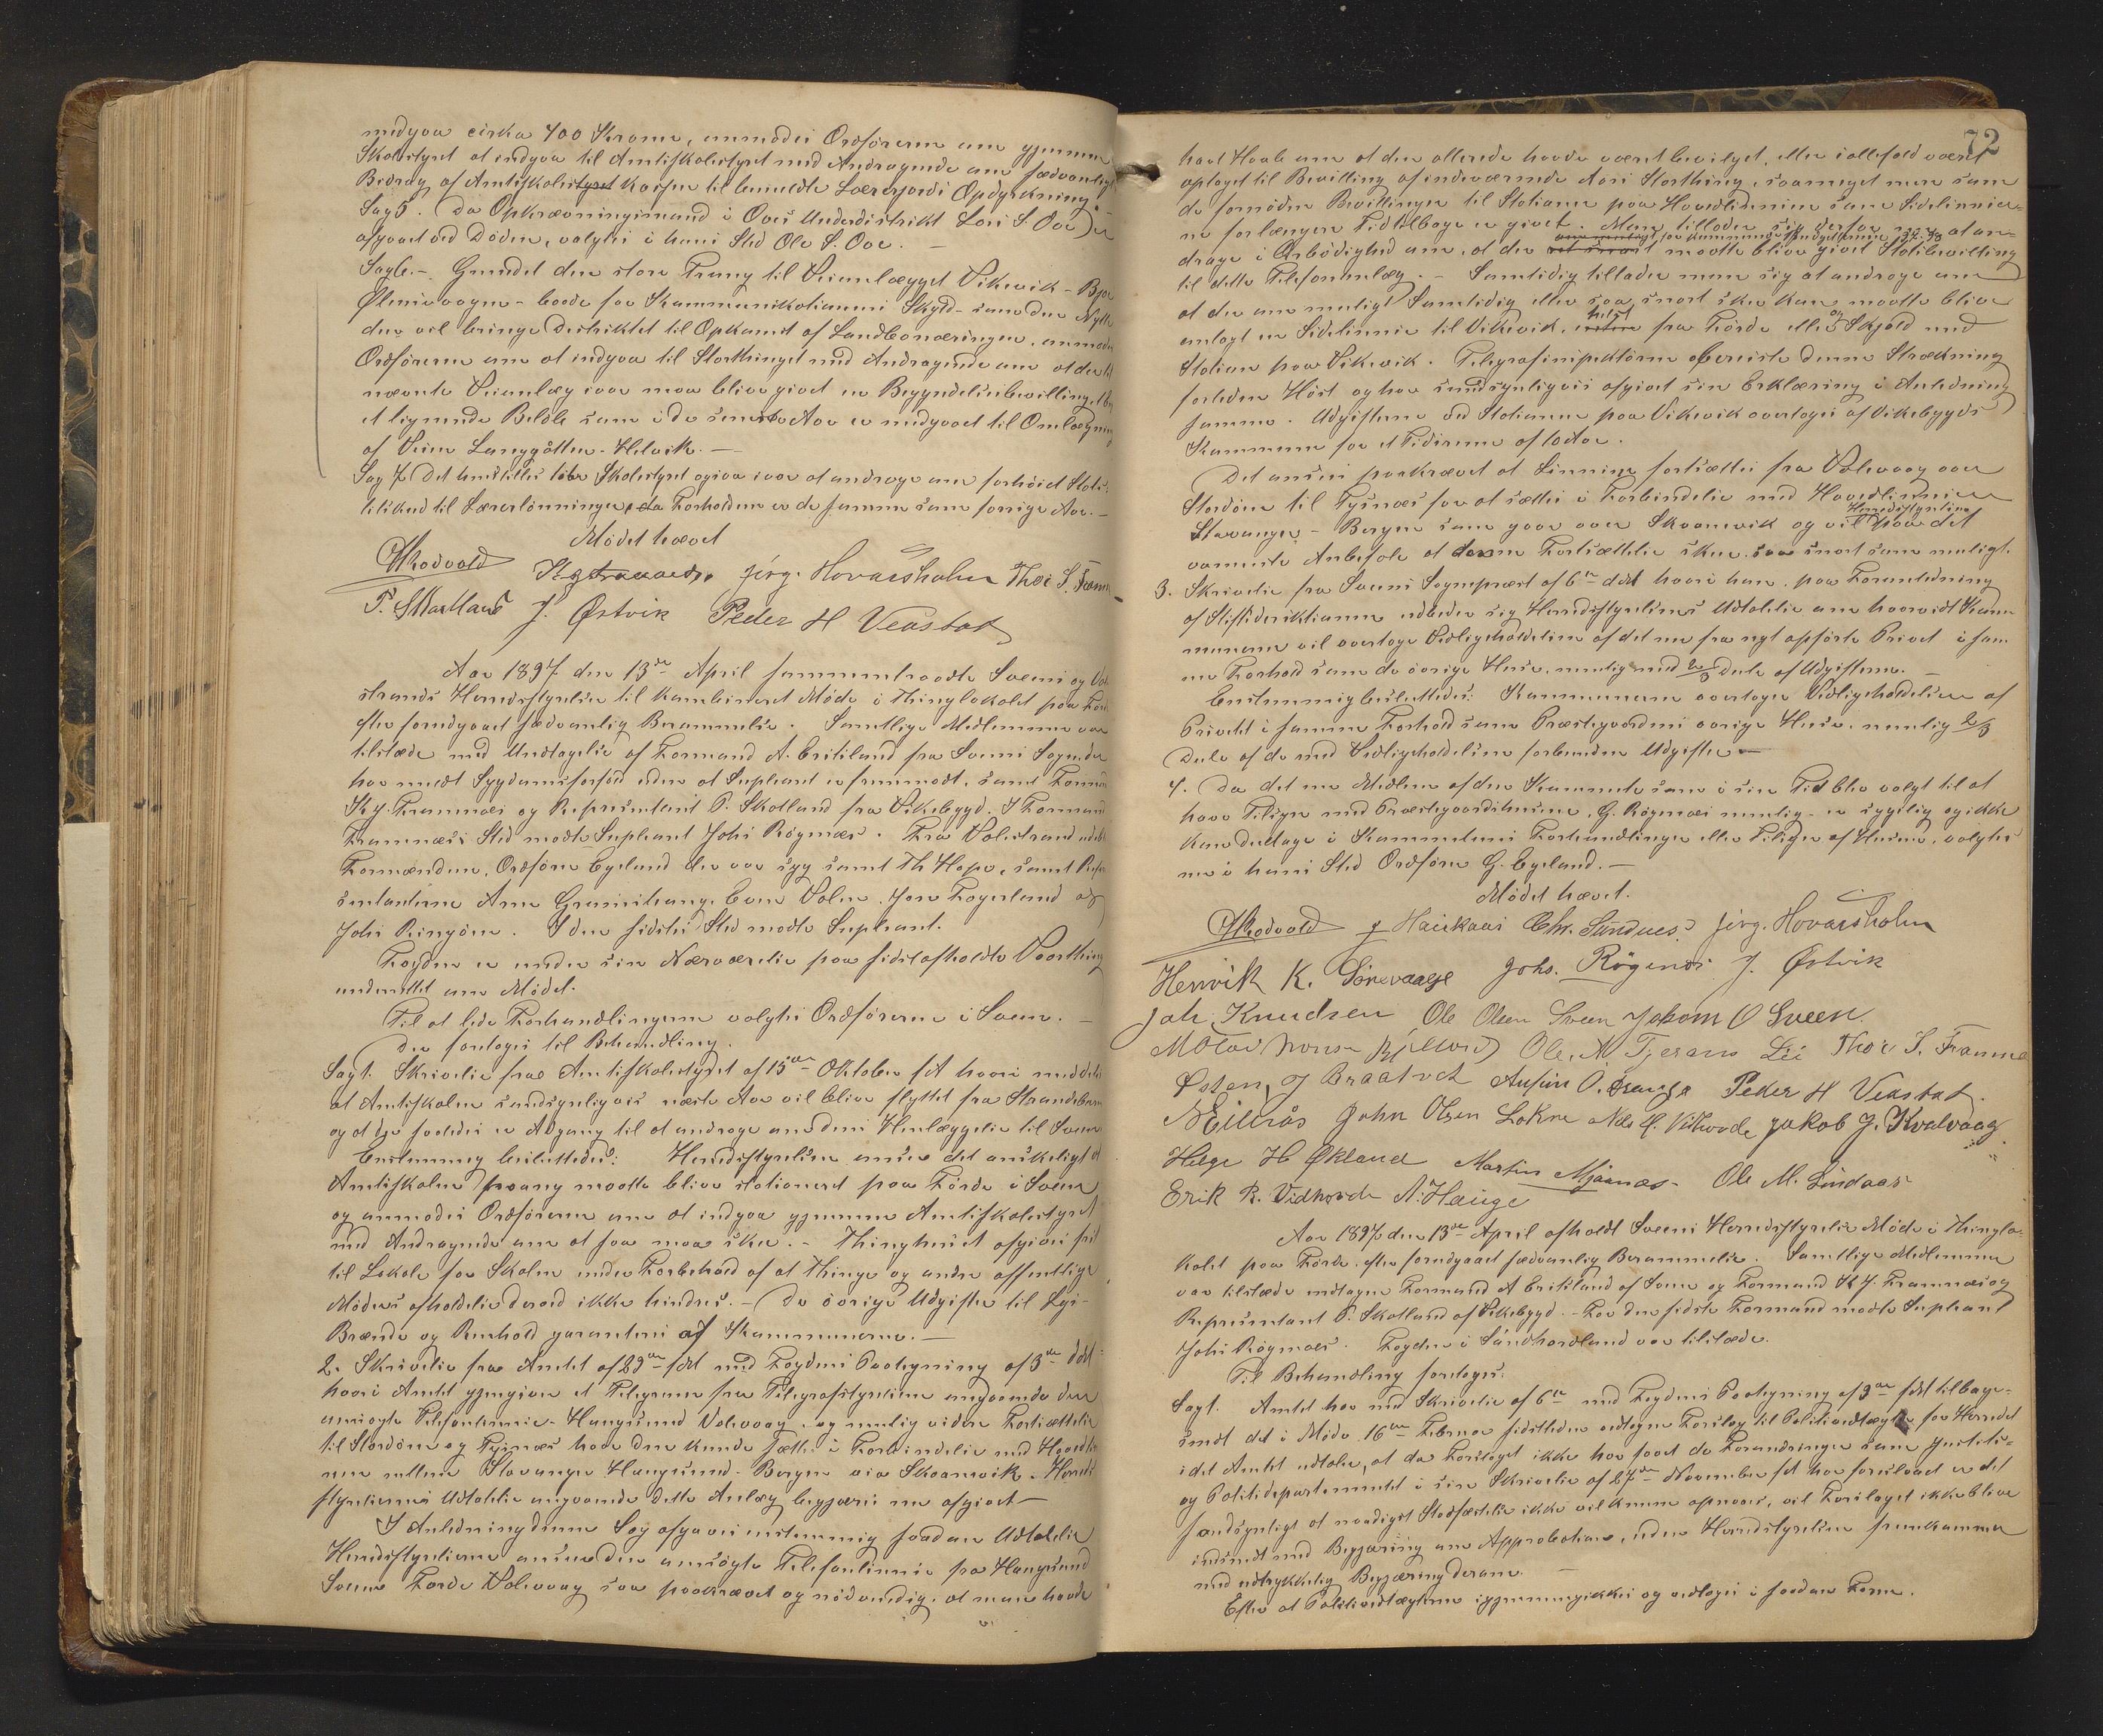 medgaa cirka 400 Kroner, anmodes Ordføreren om gjennem
Skolestyret at indgaa til Amtsskolestyret med Andragende om sædvanligt
Bidrag af Amtsskolekassen til benævnte Lærerjords Opdyrkning.
Sag 5. Da Opkrævningsmand i Øvres Underdistrikt Lars S. Oue er
afgaaet ved Døden, valgtes i hans Sted Ole S. Oue. —
Sag 6. — Grundet den store Trang til Veianlægget Vikevik - Bjoa
Ølensvaagen - baade for Kommunikationens Skyld - som den Nytte
den vil bringe Distriktet til Opkomst af Landbonæringen, anmodes
Ordføreren om at indgaa til Storthinget med Andragende om at det
nævnte Veianlæg iaar maa blive givet en Begyndelsesbevilling
et lignende Beløb som i de seneste Aar er medgaaet til Omlægning
af Veien Langgotten - Helvik. —
Sag 7. Det henstilles til Skolestyret ogsaa iaar at andrage om forhøiet Stats-
tilskud til Lærerlønningen, da Forholdene er de samme som forrige Aar. —
Mødet hævet
O Rødvold K. J. Framnæs. Jørg. Hovdesholm Thos S. Framn
P. Skartland J. Østvik Peder H Veastad
Aar 1897 den 13de April sammentraadte Sveens og Vale-
strands Herredsstyrelse til kombineret Møde i Thinglokalet paa Førde
efter forudgaaet sædvanlig Berammelse. Samtlige Medlemmer var
tilstede med Undtagelse af Formand A. Eritsland fra Sveens Sogn der
har meldt Sygdomsforfald uden at Supleant er fremmødt, samt Formand
K. J. Framnæs og Repræsentant P. Skotland fra Vikebygd. I Formand
Framnæs's Sted mødte Supleant Johs Røgenæs. Fra Valestrand udeblev
Formanden, Ordfører Egeland der var syg samt Th Hope, samt Repræ-
sentanterne Arne Grimshaug, Even Valen, Jon Fogeland og
Johs Ringøen. I den sidstes Sted mødte Supleant.
Fogden er under sin Nærværelse paa sidst afholdte Vaarthing
underrettet om Mødet.
Til at lede Forhandlingerne valgtes Ordføreren i Sveen. —
Der foretoges til Behandling.
Sag 1. Skrivelse fra Amtsskolestyret af 15de Oktober f A hvori meddeles
at Amtsskolen sandsynligvis næste Aar vil blive flyttet fra Strandebarm
og at der saaledes er Adgang til at andrage om dens Henlæggelse til Sveen
Enstemmig besluttedes: Herredsstyrelsen anser det ønskeligt at
Amtsskolen engang maatte blive stationeret paa Førde i Sveen
og anmodes Ordføreren om at indgaa gjennem Amtsskolestyret
med Andragende om at saa maa ske. — Thinghuset afgives frit
til Lokale for Skolen under Forbehold af at Thinge og andre offentlige
Møders afholdelse derved ikke hindres. — De øvrige Udgifter til Lys-
Brænde og Renhold garanteres af Kommunerne. —
2. Skrivelse fra Amtet af 29de f M med Fogdens Paategning af 3de d M
hvori Amtet gjengiver et Telegram fra Telegrafstyrelsen angaaende den
ansøgte Telefonlinie - Haugesund Valevaag, og mulig videre Fortsættelse
til Stordøen og Tysnæs hvor den kunde sættes i Forbindelse med Hovedlin-
ien mellem Stavanger Haugesund - Bergen via Skaanevik. Herreds-
styrelsernes Udtalelse angaaende dette Anlæg begjæres nu afgivet —
I Anledning denne Sag afgaves enstemmig saadan Udtalelse
Herredsstyrelserne anser den ansøgte Telefonlinie fra Haugesund
Sveen Førde Valevaag saa paakrævet og nødvendig, at man havde
havt Haab om at den allerede havde været bevilget, eller iallefald været
optaget til Bevilling af indeværende Aars Storthing, saameget mere som
de fornødne Bevillinger til Stationer paa Hovedlinien som Sidelinier-
ne for længere Tid tilbage er givet. Man tillader sig derfor at an-
drage i Ærbødighed om, at der maatte blive givet Statsbevilling
til dette Telefonanlæg. — Samtidig tillader man sig at andrage om
at der om muligt samtidig eller saa snart ske kan maatte blive
anlagt en Sidelinie til Vikevik, helst fra Førde eller Skjold med
Station paa Vikevik. Telegrafinspektøren bereiste denne Strækning
forleden Høst og har sandsynligvis afgivet sin Erklæring i Anledning
samme. Udgifterne ved Stationen paa Vikevik overtages af Vikebygds
Kommune for et Tidsrum af 10 Aar.
Det ansees paakrævet at Linien fortsættes fra Valevaag over
Stordøen til Tysnæs for at sættes i Forbindelse med Hovedlinien
Stavanger - Bergen som gaar over Skaanevik og vil Herredsstyrelserne paa det
varmeste Anbefale at denne Fortsættelse skeer saa snart som muligt.
3. Skrivelse fra Sveens Sognepræst af 6te d M hvori han paa Foranledning
af Stiftsdirektionen udbeder sig Herredsstyrelsens Udtalelse om hvorvidt Kom-
munerne vil overtage Vedligeholdelsen af det nu fra nyt opførte Privet i sam-
me Forhold som de øvrige Huse, nemlig med 2/3 Dele af Udgifterne. —
Enstemmig besluttedes: Kommunerne overtager Vedligeholdelsen af
Privetet i samme Forhold som Præstegaardens øvrige Huse, nemlig 2/3
Dele af de med Vedligeholdelsen forbundne Udgifter —
4. Da det ene Medlem af den Kommitte som i sin Tid blev valgt til at
have Tilsyn med Præstegaardshusene, G. Røgenæs nemlig - er sygelig og ikke
kan deltage i Kommitteens Forhandlinger eller Tilsyn af Husene, valgtes
nu i hans Sted Ordfører G. Egeland. —
Mødet hævet.
O Rødvold J Haukaas Chr. Sundnes Jørg. Hovdesholm
Henrik K. Sørevaage Johs. Røgenæs J. Østvik
Joh. Knudsen Ole Olsen Sveen Jakom O Sveen
Ole. M Tjerans Lie Thos S. Framne
Østen J Braatvet Ausen O. Hauge Peder H Veastad.
N Eilerås John Olsen Lokne Nils H. Vihovde Jakob J. Kvalvaag
Helge H Økland Martin Mjaanæs. Ole M. Lindaas
Erik R. Vidhovde A. Hauge
Aar 1897 den 13de April afholdt Sveens Herredsstyrelse Møde i Thinglo-
kalet paa Førde, efter forudgaaet sædvanlig Berammelse. Samtlige Medlemmer
var tilstede undtagen Formand A Eritsland af Sveen og Formand K J. Framnæs og
Repræsentant P. Skotland af Vikebygd. — For den sidste Formand mødte Supleant
Johs Røgenæs. Fogden i Søndhordland var tilstede.
Til Behandling foretoges:
Sag 1. Amtet har med Skrivelse af 6te med Fogdens Paategning af 9de f M tilbage-
sendt det i Møde 16de Februar sidstleden vedtagne Forslag til Politivedtægter for Herredet
idet Amtet udtaler, at da Forslaget ikke har faaet de Forandringer som Justits-
og Politidepartementet i sin Skrivelse af 27de November f A har foreslaaet er det
sandsynligt at naadigst Stadfæstelse ikke vil kunne opnaaes, vil Forslaget ikke blive
indsendt med Begjæring om Approbation, uden Herredsstyrelsen fremkommer
med udtrykkelig Begjæring derom. —
Efter at Politivedtægterne igjennemgikkes og vedtoges i saadan Form.
72